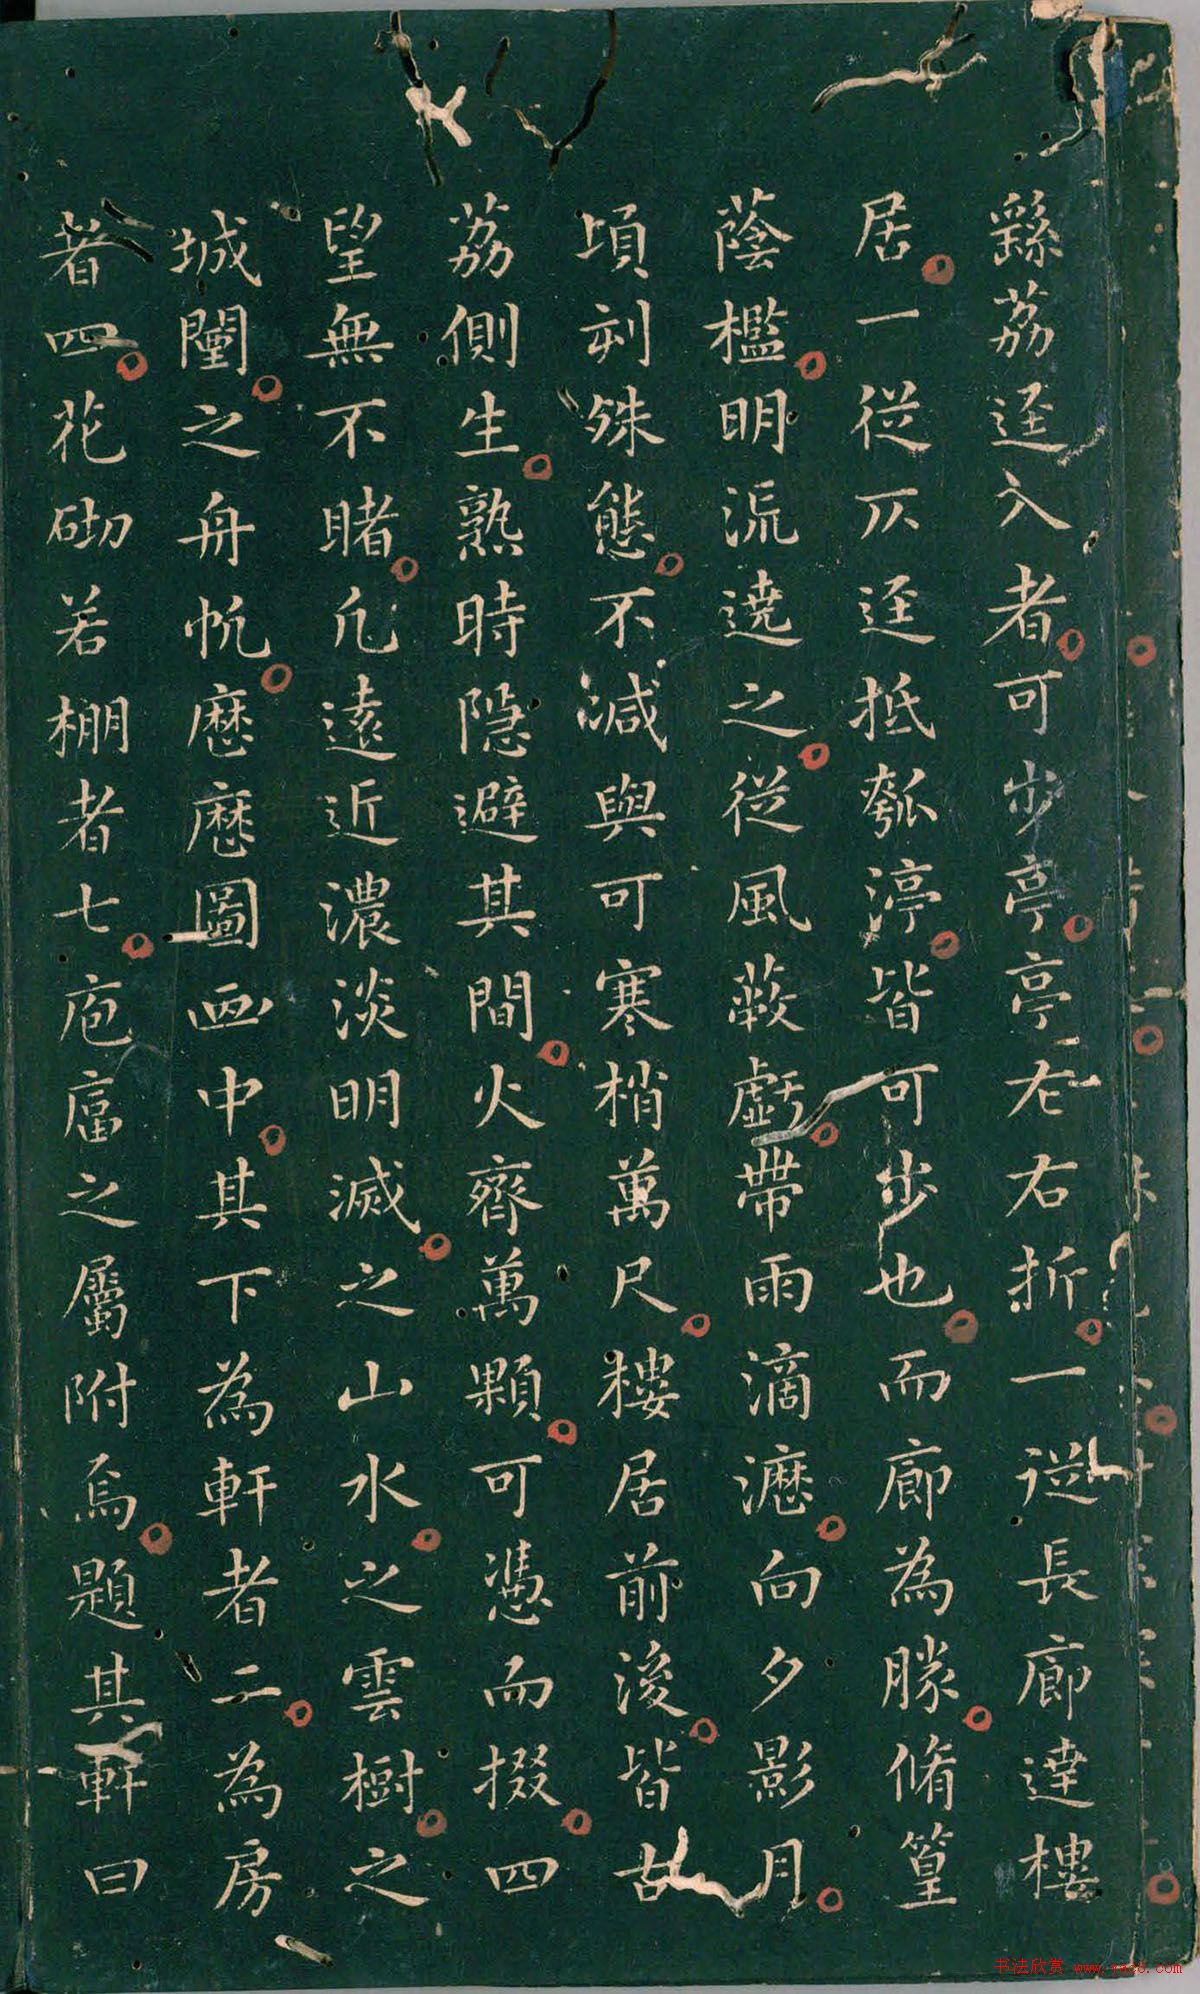 繇荔迳入者可步亭亭左右折一從長廊達樓
居一從仄迳抵瓠渟皆可步也而廊為勝脩篁
蔭檻明流遶之從風蔌戲帶雨滴瀝向夕影月
頃刻殊態不減與可寒梢萬尺樓居前後皆古
荔側生熟時隱避其間火齊萬顆可憑而掇四
望無不睹凡遠近濃淡明滅之山水之雲樹之
城闉之舟帆歷歷圖画中其下為軒者二為房
者四花砌若棚者七庖湢之屬附焉題其軒曰
书法欣赏